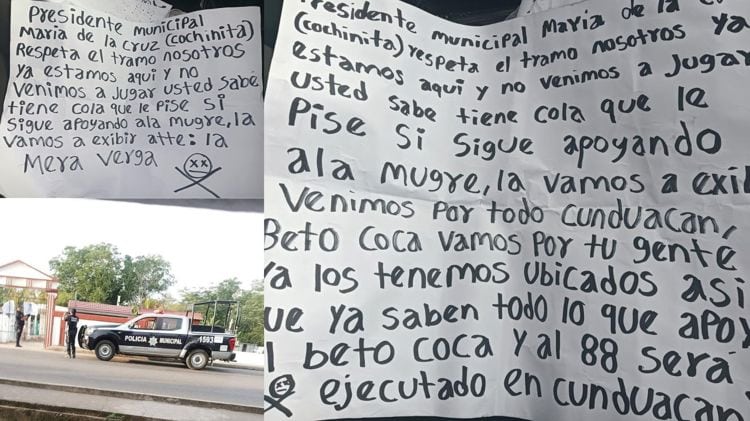 Presidente municipal
Maria de la Cruz (cochinita)
Respeta el tramo nosotros
ya estamos aqui y no
venimos a jugar usted sabe
tiene cola que le pise si
sigue apoyando ala mugre, la
vamos a exibir atte: la
mera verga
residente municipal Maria de la
(cochinita) respeta el tramo nosotros ya
estamos aqui y no venimos a jugar
usted sabe tiene cola que le
pise si sigue apoyando
ala mugre, la vamos a exi
venimos por todo cunduacan,
Beto coca vamos por tu gente
ya los tenemos ubicados asi
ue ya saben todo lo que apoy
l beto coca y al 88 será
ejecutado en cunduacan
POLICIA MUNICIPAL
1593